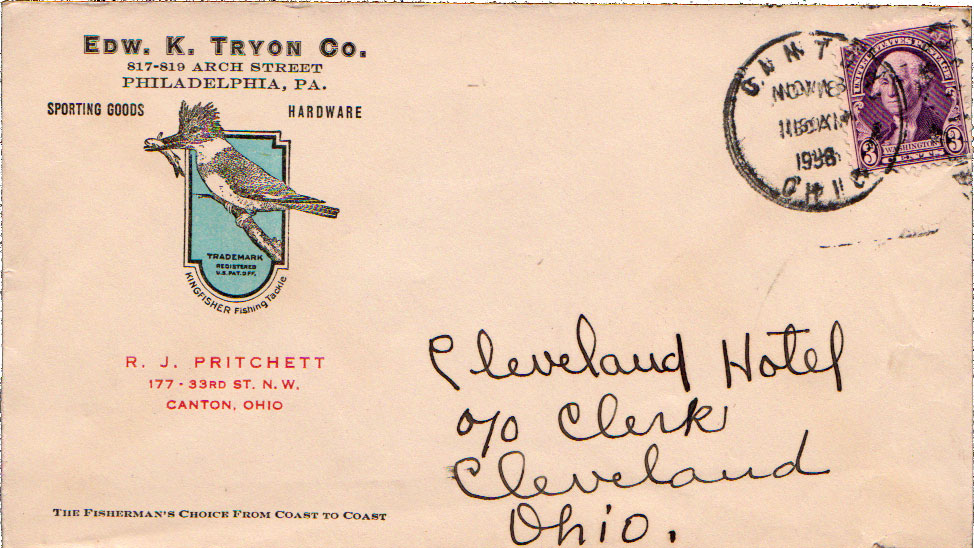 EDW. K. TRYON CO.
817-819 ARCH STREET
PHILADELPHIA, PA.
SPORTING GOODS HARDWARE
TRADEMARK
REGISTERED
U.S. PAT. OFF.
KINGFISHER Fishing Tackle
R. J. PRITCHETT
177 - 33RD ST. N. W.
CANTON, OHIO
THE FISHERMAN'S CHOICE FROM COAST TO COAST
NOV
OHIO
UNITED STATES POSTAGE
3 WASHINGTON 3
Cleveland Hotel
o/o Clerk
Cleveland
Ohio.